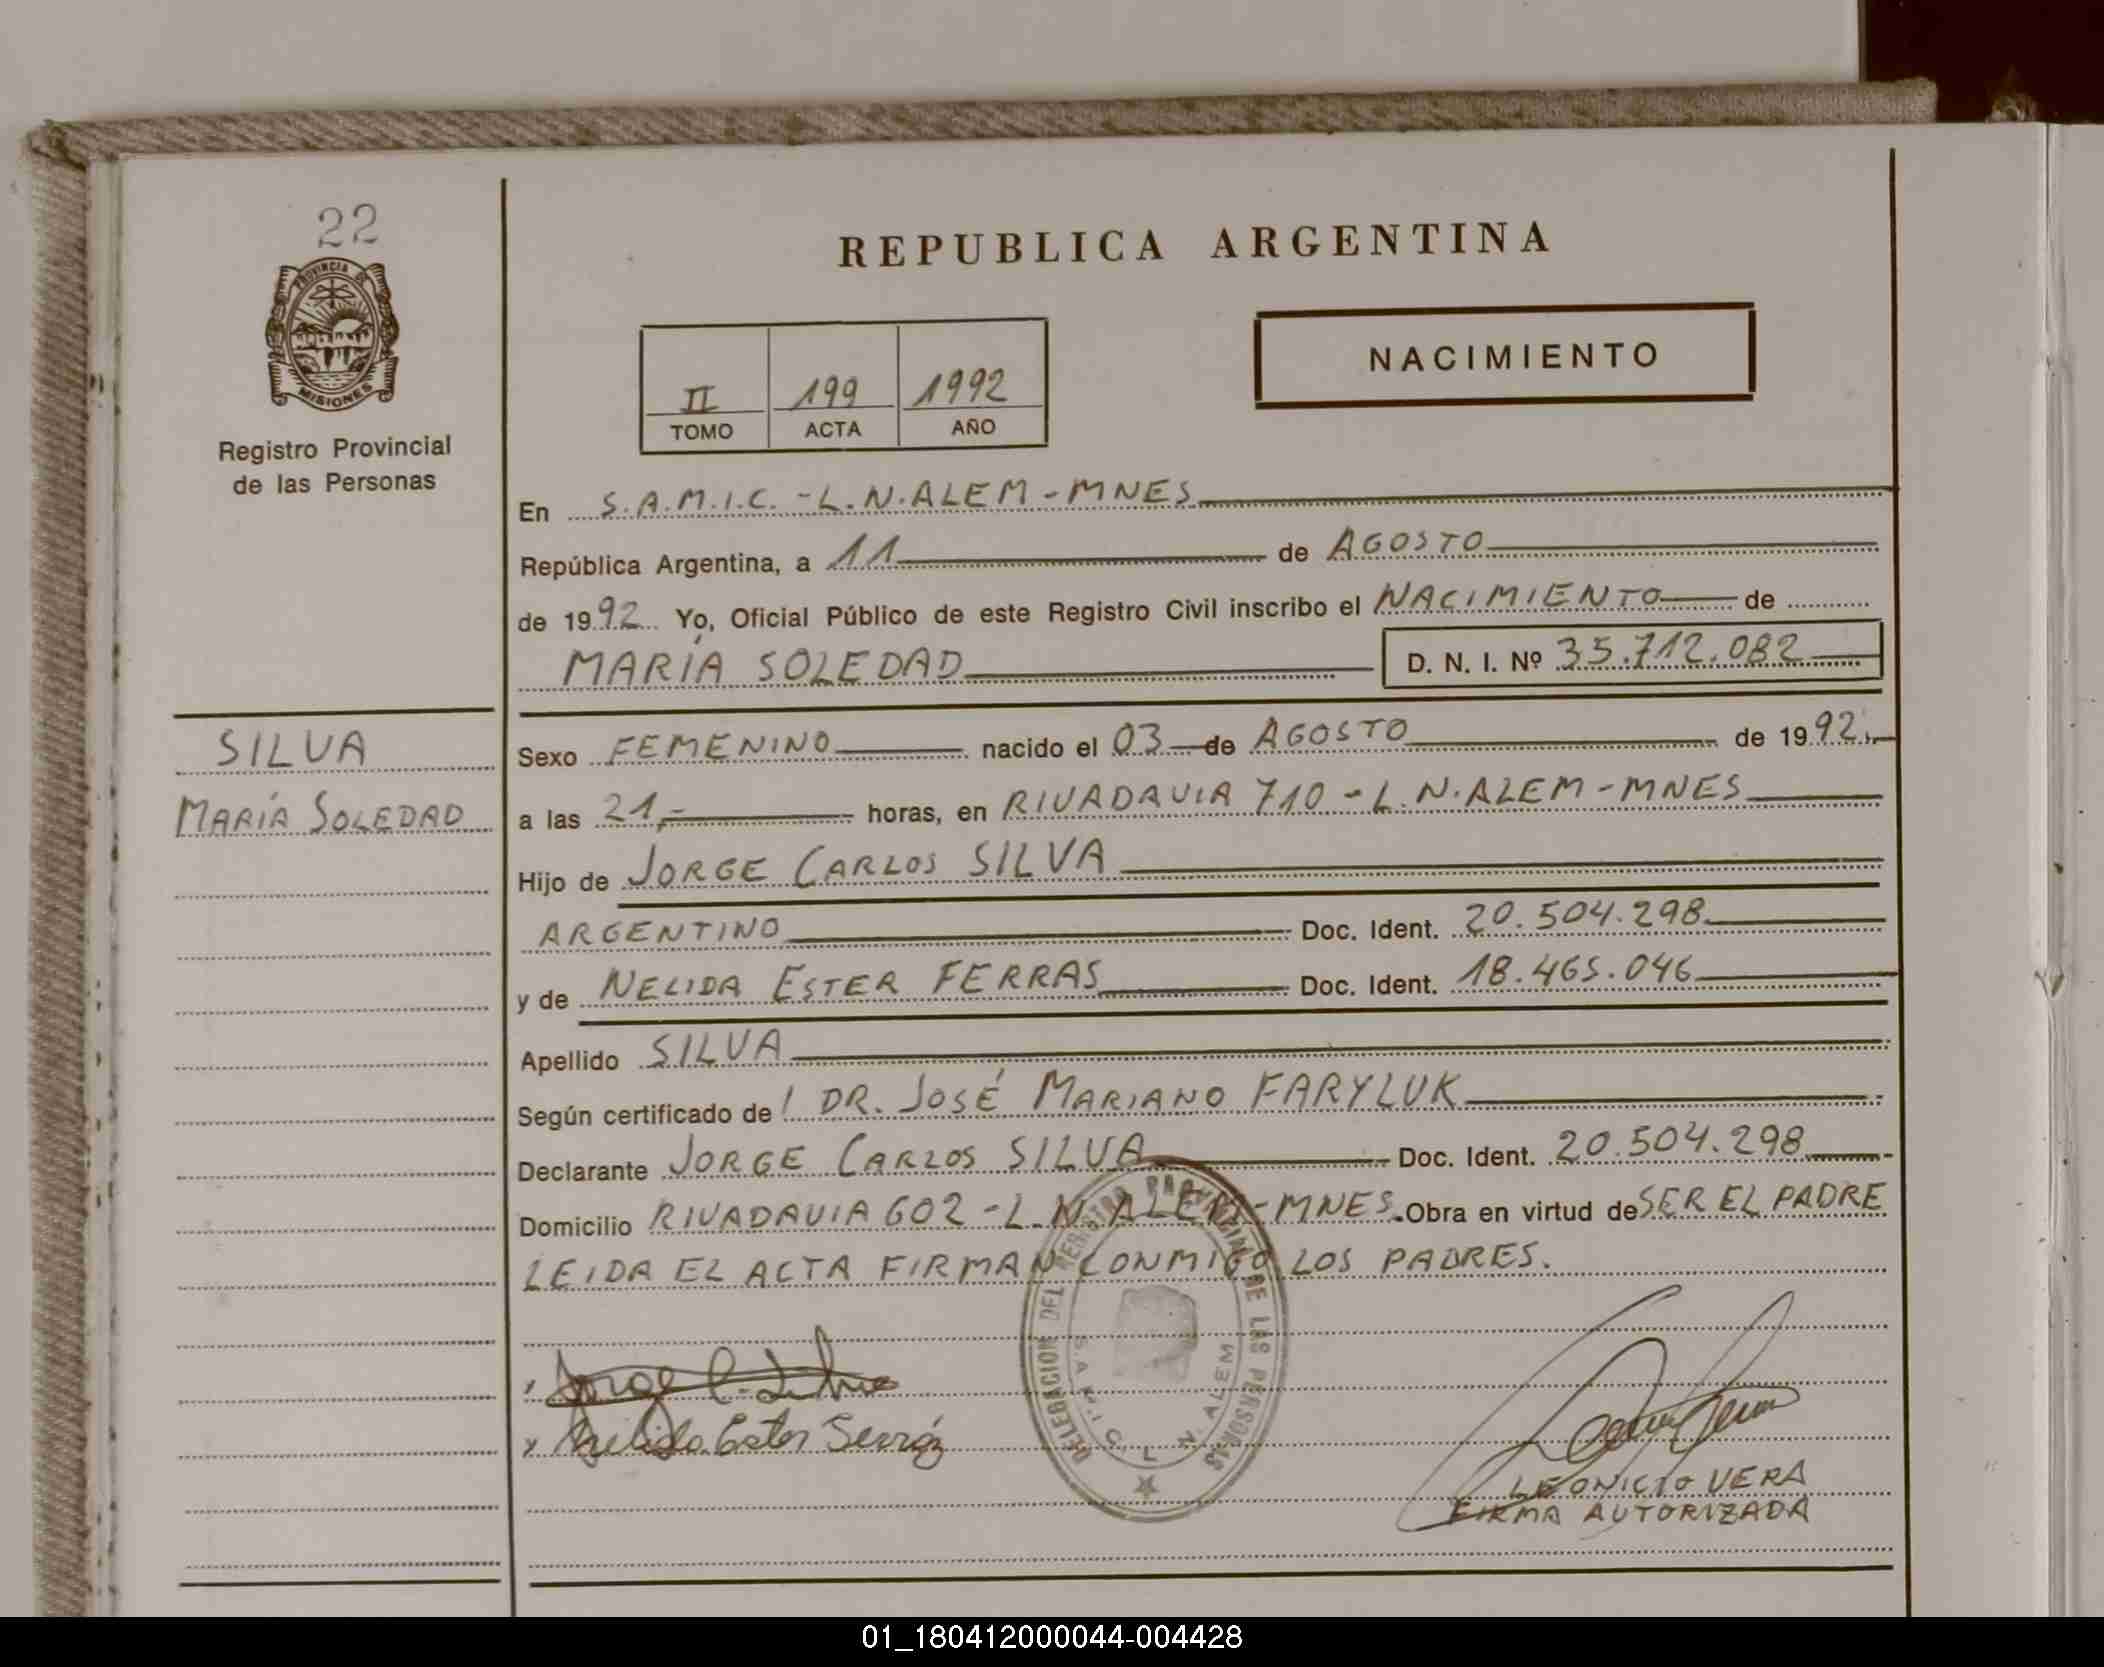 22
PROVINCIA DE
MISIONES
Registro Provincial
de las Personas
REPUBLICA ARGENTINA
II 199 1992
TOMO ACTA AÑO
NACIMIENTO
En S.A.M.I.C. - L.N.ALEM - MNES
República Argentina, a 11 de AGOSTO
de 1992 Yo, Oficial Público de este Registro Civil inscribo el NACIMIENTO de
MARÍA SOLEDAD D. N. I. Nº 35.712.082
SILVA
MARÍA SOLEDAD
Sexo FEMENINO nacido el 03 de AGOSTO de 1992.
a las 21,- horas, en RIVADAVIA 710 - L.N.ALEM - MNES
Hijo de JORGE CARLOS SILVA
ARGENTINO Doc. Ident. 20.504.298
y de NELIDA ESTER FERRAS Doc. Ident. 18.465.046
Apellido SILVA
Según certificado de l DR. JOSÉ MARIANO FARYLUK
Declarante JORGE CARLOS SILVA Doc. Ident. 20.504.298
Domicilio RIVADAVIA 602 - L.N.ALEM - MNES. Obra en virtud de SER EL PADRE
LEIDA EL ACTA FIRMAN CONMIGO LOS PADRES.
Jorge C. Silva
Nelida Ester Ferráz
DELEGACION DEL REGISTRO PROVINCIAL DE LAS PERSONAS
S.A.M.I.C. L. N. ALEM
LEONICIO VERA
FIRMA AUTORIZADA
01_180412000044-004428